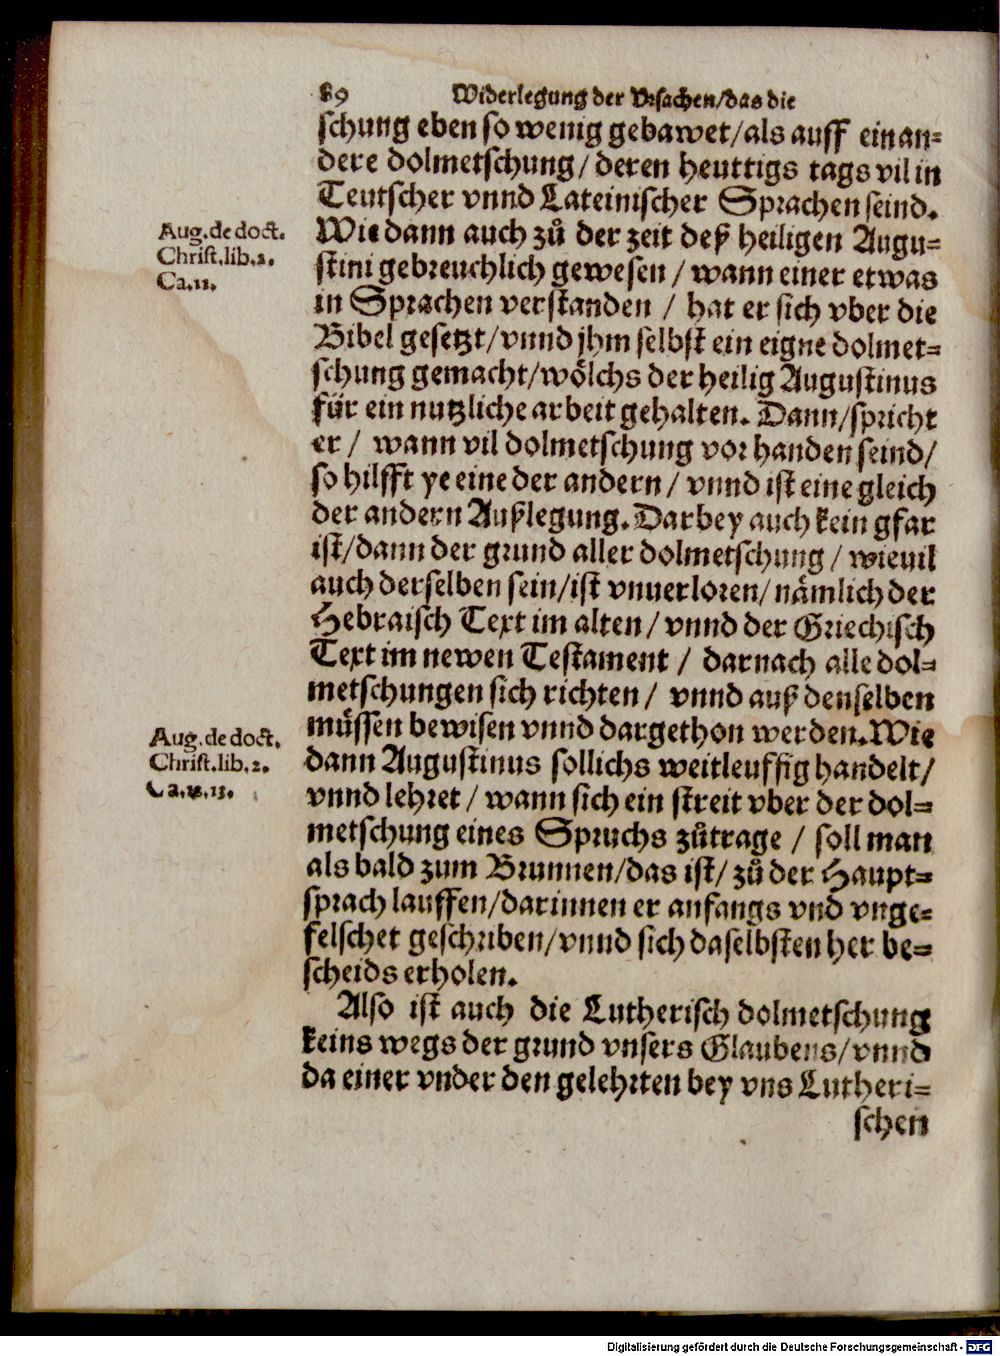 89 Widerlegung der Vrsachen/das die
schung eben so wenig gebawet/als auff ein an-
dere dolmetschung/deren heuttigs tags vil in
Teutscher vnnd Lateinischer Sprachen seind.
Wie dann auch zů der zeit deß heiligen Augu-
stini gebreuchlich gewesen / wann einer etwas
in Sprachen verstanden / hat er sich vber die
Bibel gesetzt/vnnd jhm selbst ein eigne dolmet-
schung gemacht/wölchs der heilig Augustinus
für ein nutzliche arbeit gehalten. Dann/spricht
er / wann vil dolmetschung vorhanden seind/
so hilfft ye eine der andern / vnnd ist eine gleich
der andern Außlegung. Darbey auch kein gfar
ist/dann der grund aller dolmetschung / wieuil
auch derselben sein/ist vnuerloren/nämlich der
Hebraisch Text im alten/ vnnd der Griechisch
Text im newen Testament / darnach alle dol-
metschungen sich richten / vnnd auß denselben
müssen bewisen vnnd dargethon werden. Wie
dann Augustinus sollichs weitleuffig handelt/
vnnd lehret / wann sich ein streit vber der dol-
metschung eines Spruchs zůtrage / soll man
als bald zum Brunnen/das ist/ zů der Haupt-
sprach lauffen/darinnen er anfangs vnd vnge-
felschet geschriben/vnnd sich daselbsten her be-
scheids erholen.
Also ist auch die Lutherisch dolmetschung
keins wegs der grund vnsers Glaubens/vnnd
da einer vnder den gelehrten bey vns Lutheri-
schen
Aug. de doct.
Christ. lib. 2.
Ca. 11.
Aug. de doct.
Christ. lib. 2.
Ca. 13.
Digitalisierung gefördert durch die Deutsche Forschungsgemeinschaft - DFG